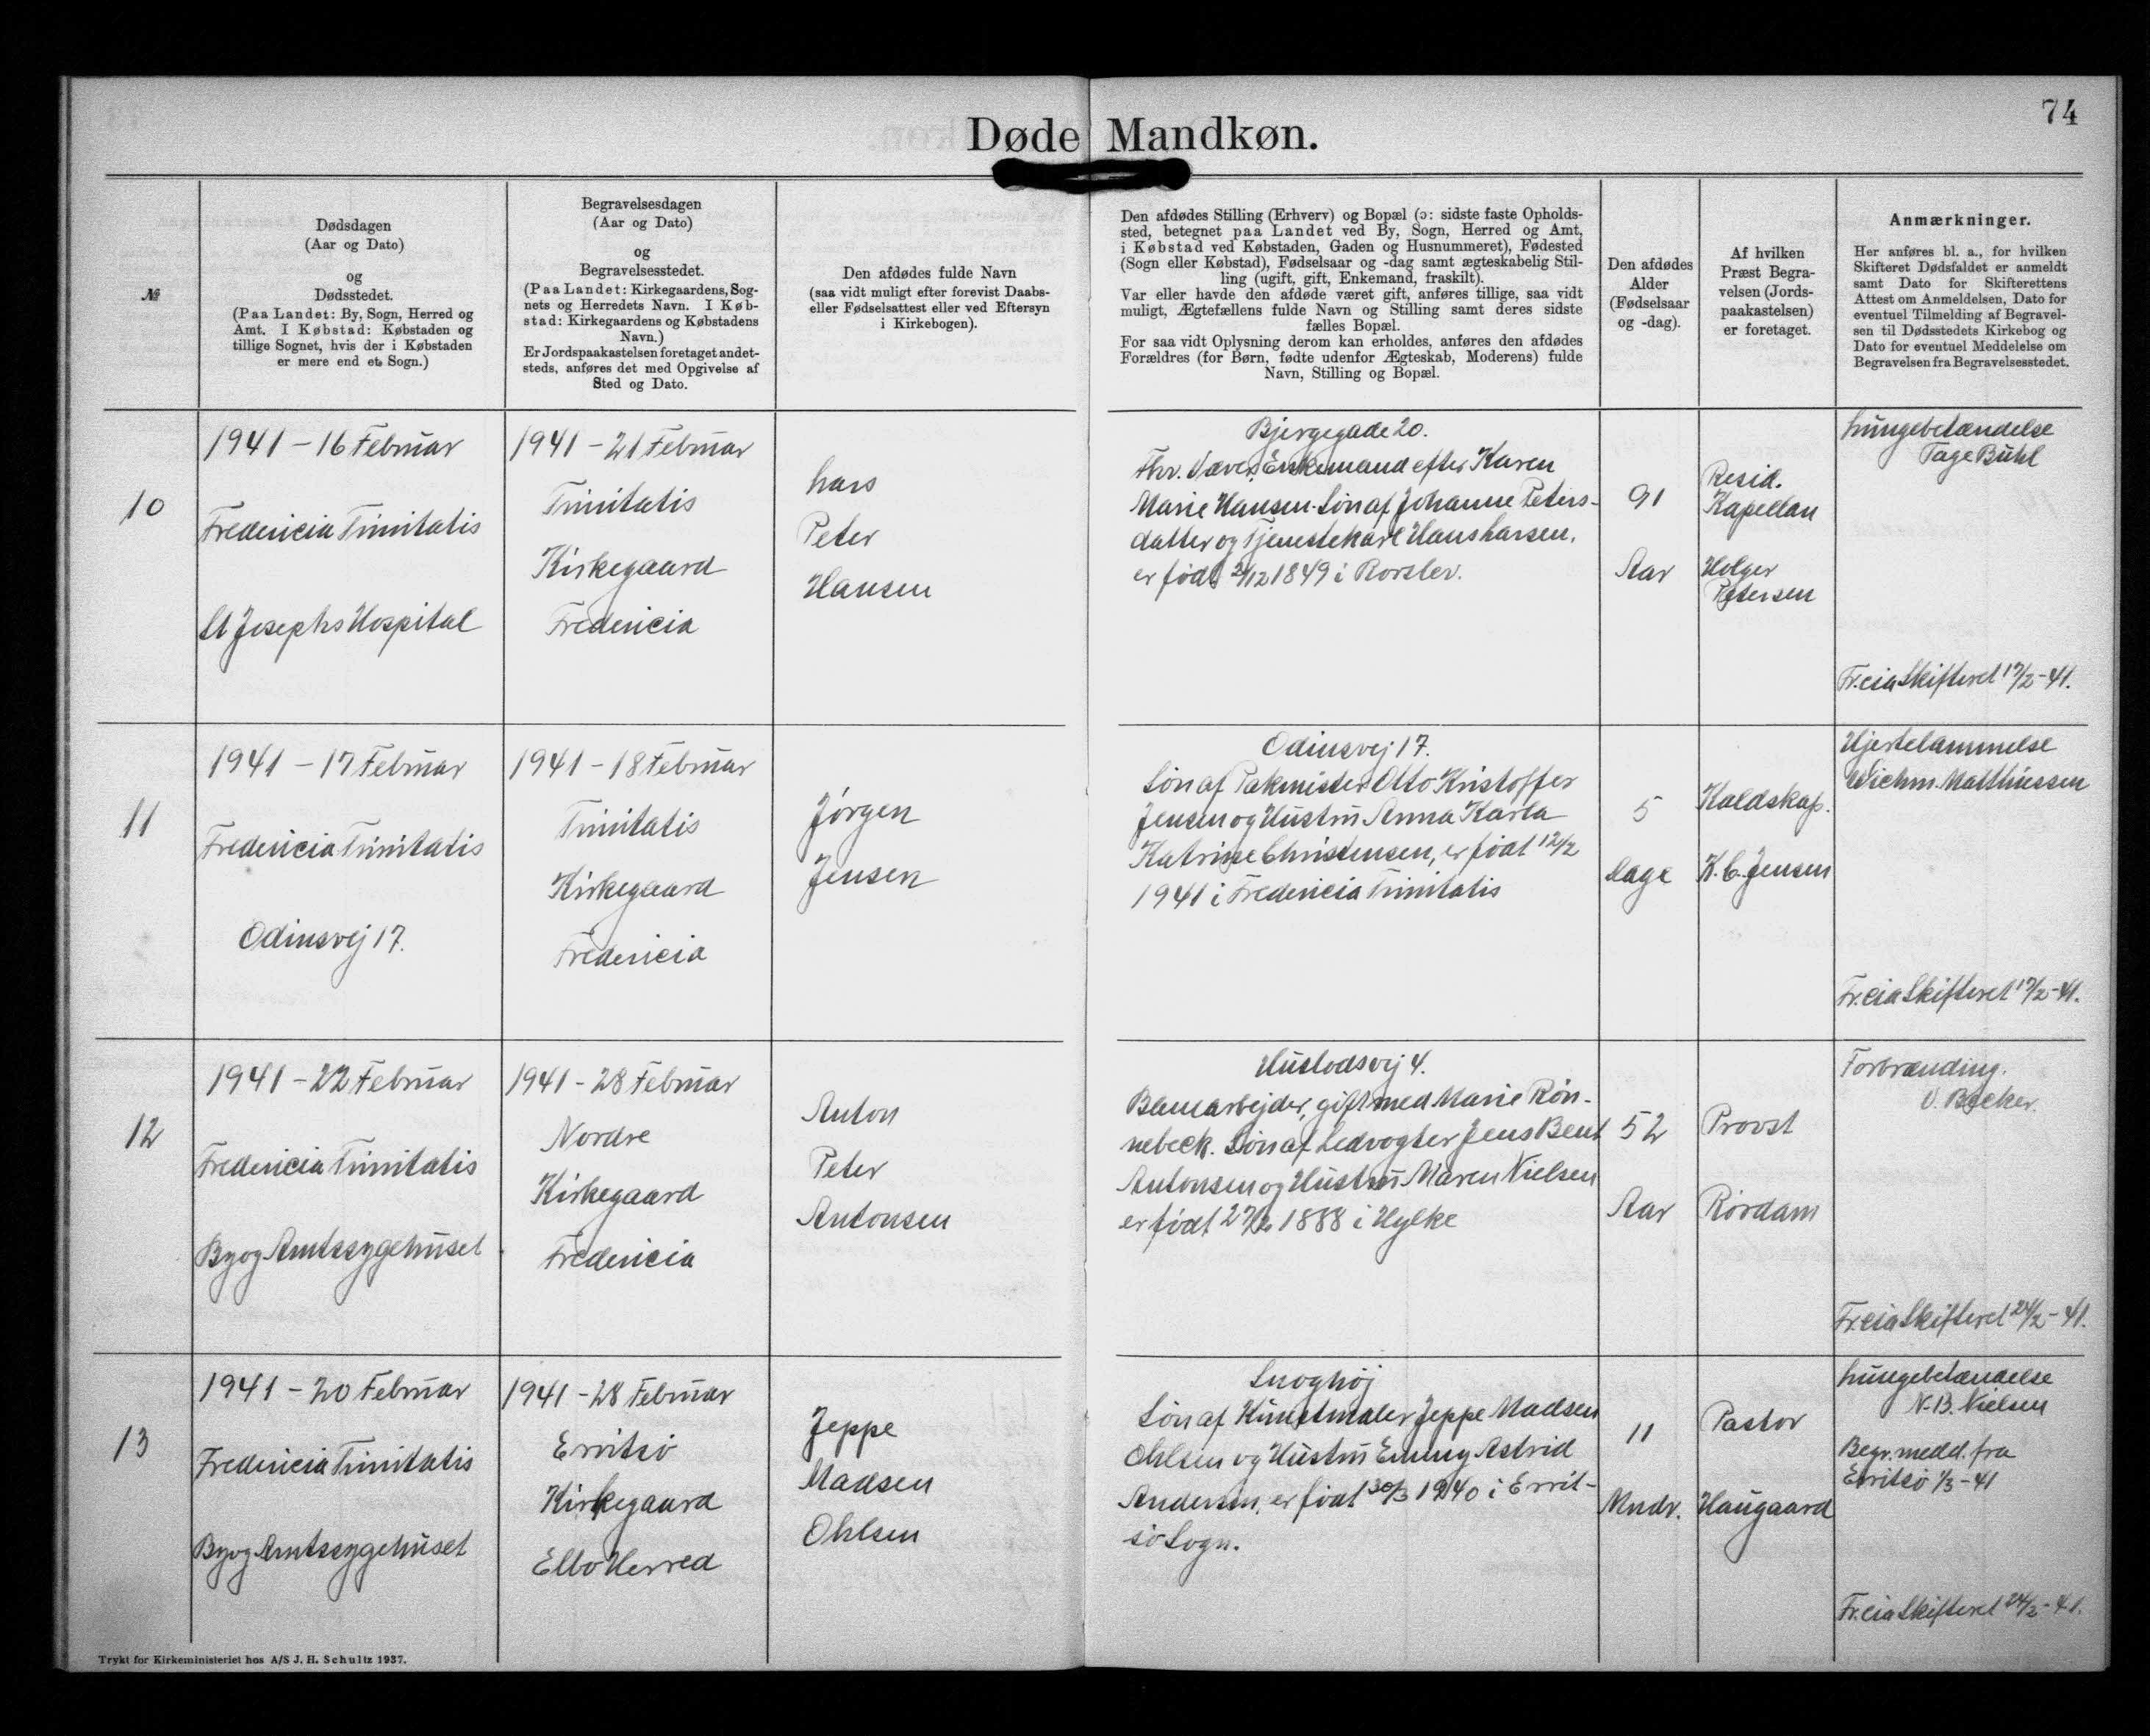 74
Døde Mandkøn.
№
Dødsdagen
(Aar og Dato)
og
Dødsstedet.
(Paa Landet: By, Sogn, Herred og
Amt. I Købstad: Købstaden og
tillige Sognet, hvis der i Købstaden
er mere end et Sogn.)
Begravelsesdagen
(Aar og Dato)
og
Begravelsesstedet.
(Paa Landet: Kirkegaardens, Sog-
nets og Herredets Navn. I Køb-
stad: Kirkegaardens og Købstadens
Navn.)
Er Jordspaakastelsen foretaget andet-
steds, anføres det med Opgivelse af
Sted og Dato.
Den afdødes fulde Navn
(saa vidt muligt efter forevist Daabs-
eller Fødselsattest eller ved Eftersyn
i Kirkebogen).
Den afdødes Stilling (Erhverv) og Bopæl (ɔ: sidste faste Opholds-
sted, betegnet paa Landet ved By, Sogn, Herred og Amt,
i Købstad ved Købstaden, Gaden og Husnummeret), Fødested
(Sogn eller Købstad), Fødselsaar og -dag samt ægteskabelig Stil-
ling (ugift, gift, Enkemand, fraskilt).
Var eller havde den afdøde været gift, anføres tillige, saa vidt
muligt, Ægtefællens fulde Navn og Stilling samt deres sidste
fælles Bopæl.
For saa vidt Oplysning derom kan erholdes, anføres den afdødes
Forældres (for Børn, fødte udenfor Ægteskab, Moderens) fulde
Navn, Stilling og Bopæl.
Den afdødes
Alder
(Fødselsaar
og -dag).
Af hvilken
Præst Begra-
velsen (Jords-
paakastelsen)
er foretaget.
Anmærkninger.
Her anføres bl. a., for hvilken
Skifteret Dødsfaldet er anmeldt
samt Dato for Skifterettens
Attest om Anmeldelsen, Dato for
eventuel Tilmelding af Begravel-
sen til Dødsstedets Kirkebog og
Dato for eventuel Meddelelse om
Begravelsen fra Begravelsesstedet.
10
1941 – 16 Februar
Fredericia Trinitatis
St Josephs Hospital
1941 – 21 Februar
Trinitatis
Kirkegaard
Fredericia
Lars
Peter
Hansen
Bjergegade 20.
Fhv. Væver, Enkemand efter Karen
Marie Hansen. Søn af Johanne Peters-
datter og Tjenestekarl Hans Larsen,
er født 1849 i Rorslev.
91
Aar
Resid.
Kapellan
Holger
Petersen
Lungebetændelse
Tage Bühl
Fr.cia Skifteret 17/2-41.
11
1941 – 17 Februar
Fredericia Trinitatis
Odinsvej 17.
1941 – 18 Februar
Trinitatis
Kirkegaard
Fredericia
Jørgen
Jensen
Odinsvej 17.
Søn af Pakmester Otto Kristoffer
Jensen og Hustru Anna Karla
Katrine Christensen, er født 12/2
1941 i Fredericia Trinitatis
5
Dage
Kaldskap.
K. C. Jensen
Hjertelammelse
Wichm. Matthiessen
Fr.cia Skifteret 17/2-41.
12
1941 – 22 Februar
Fredericia Trinitatis
By og Amtssygehuset
1941 – 28 Februar
Nordre
Kirkegaard
Fredericia
Anton
Peter
Antonsen
Huslodsvej 4.
Banearbejder, gift med Marie Røn-
nebeck. Søn af Ledvogter Jens Bent
Antonsen og Hustru Maren Nielsen
er født 1888 i Hylke
52
Aar
Provst
Rørdam
Forbrænding.
V. Becker.
Fr.cia Skifteret 24/2-41.
13
1941 – 20 Februar
Fredericia Trinitatis
By og Amtssygehuset
1941 – 28 Februar
Erritsø
Kirkegaard
Elbo Herred
Jeppe
Madsen
Ohlsen
Snoghøj
Søn af Kunstmaler Jeppe Madsen
Ohlsen og Hustru Emmy Astrid
Andersen, er født 30/3 1940 i Errit-
sø Sogn.
11
Mndr.
Pastor
Haugaard
Lungebetændelse
N. B. Nielsen
Begr. medd. fra
Erritsø 1/3-41
Fr.cia Skifteret 24/2-41.
Trykt for Kirkeministeriet hos A/S J. H. Schultz 1937.